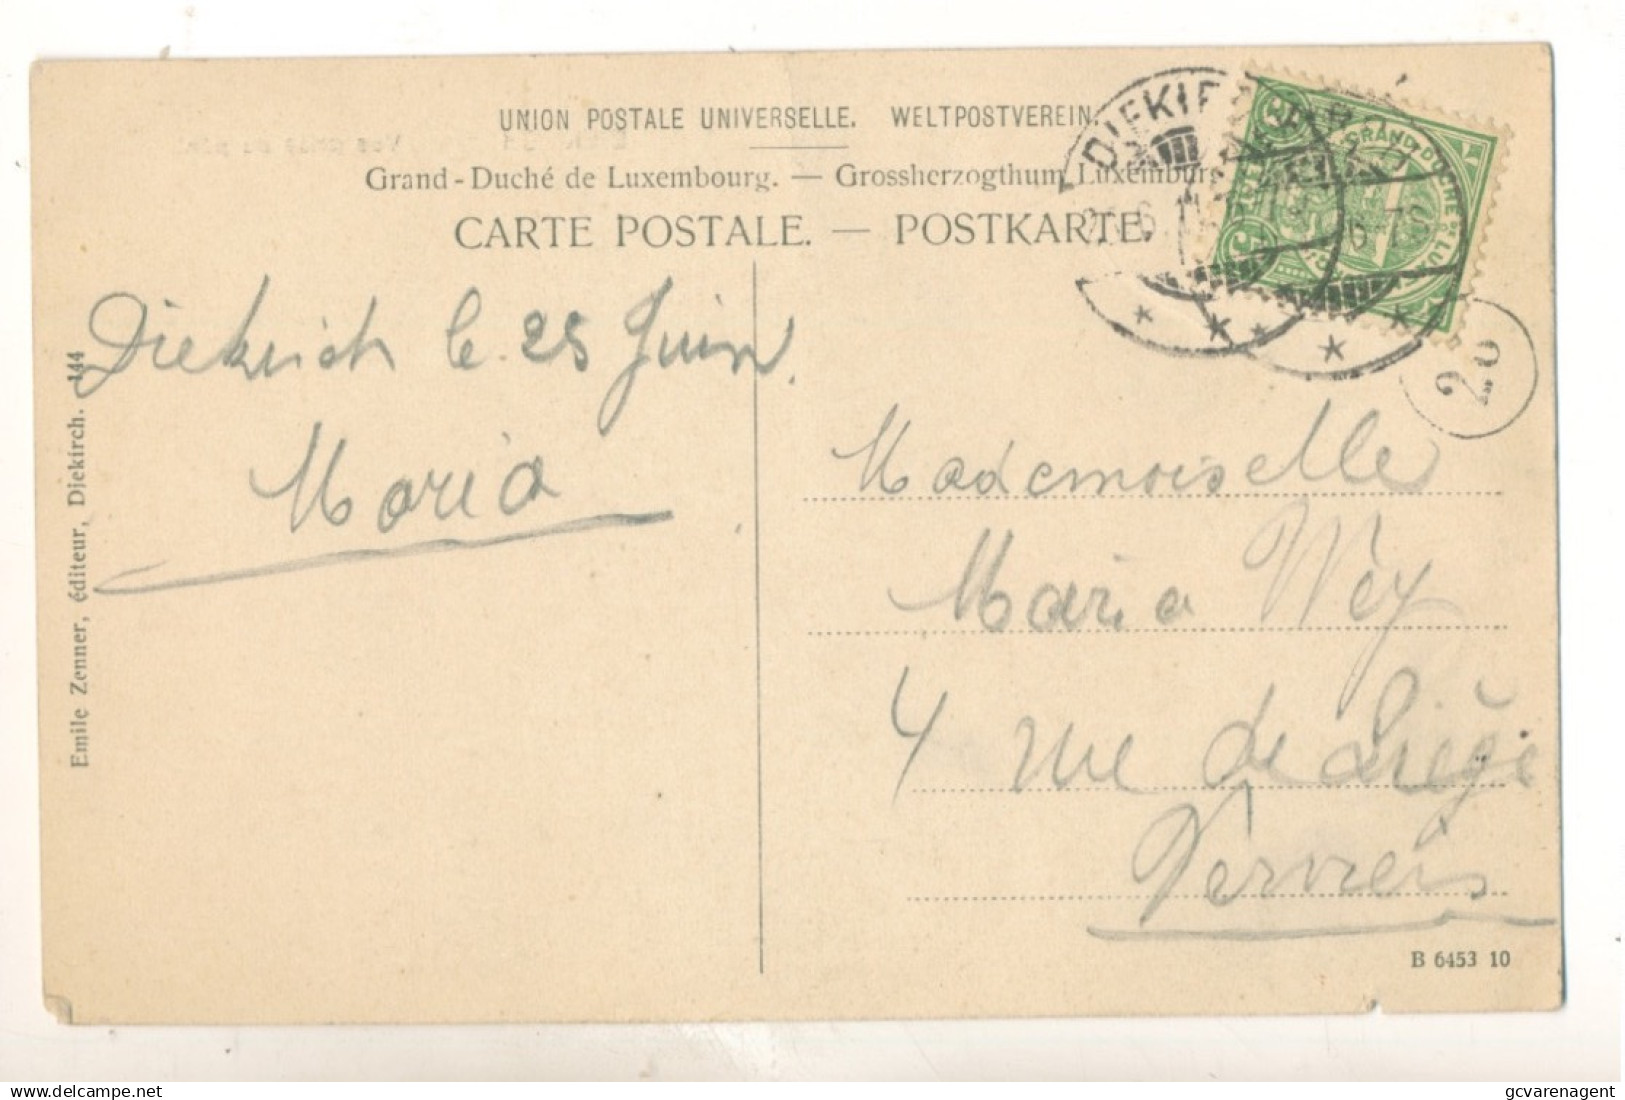 UNION POSTALE UNIVERSELLE. WELTPOSTVEREIN.
Grand-Duché de Luxembourg. — Grossherzogthum Luxemburg
CARTE POSTALE. — POSTKARTE.
DIEKIRCH
GRAND DUCHÉ DE LUX
5
20
Diekirich le 25 Juin.
Maria
Mademoiselle
Maria Wéy
4 rue de Liége
Verviers
Emile Zenner, éditeur, Diekirch. 144
B 6453 10
delcampe.net
gcvarenagent